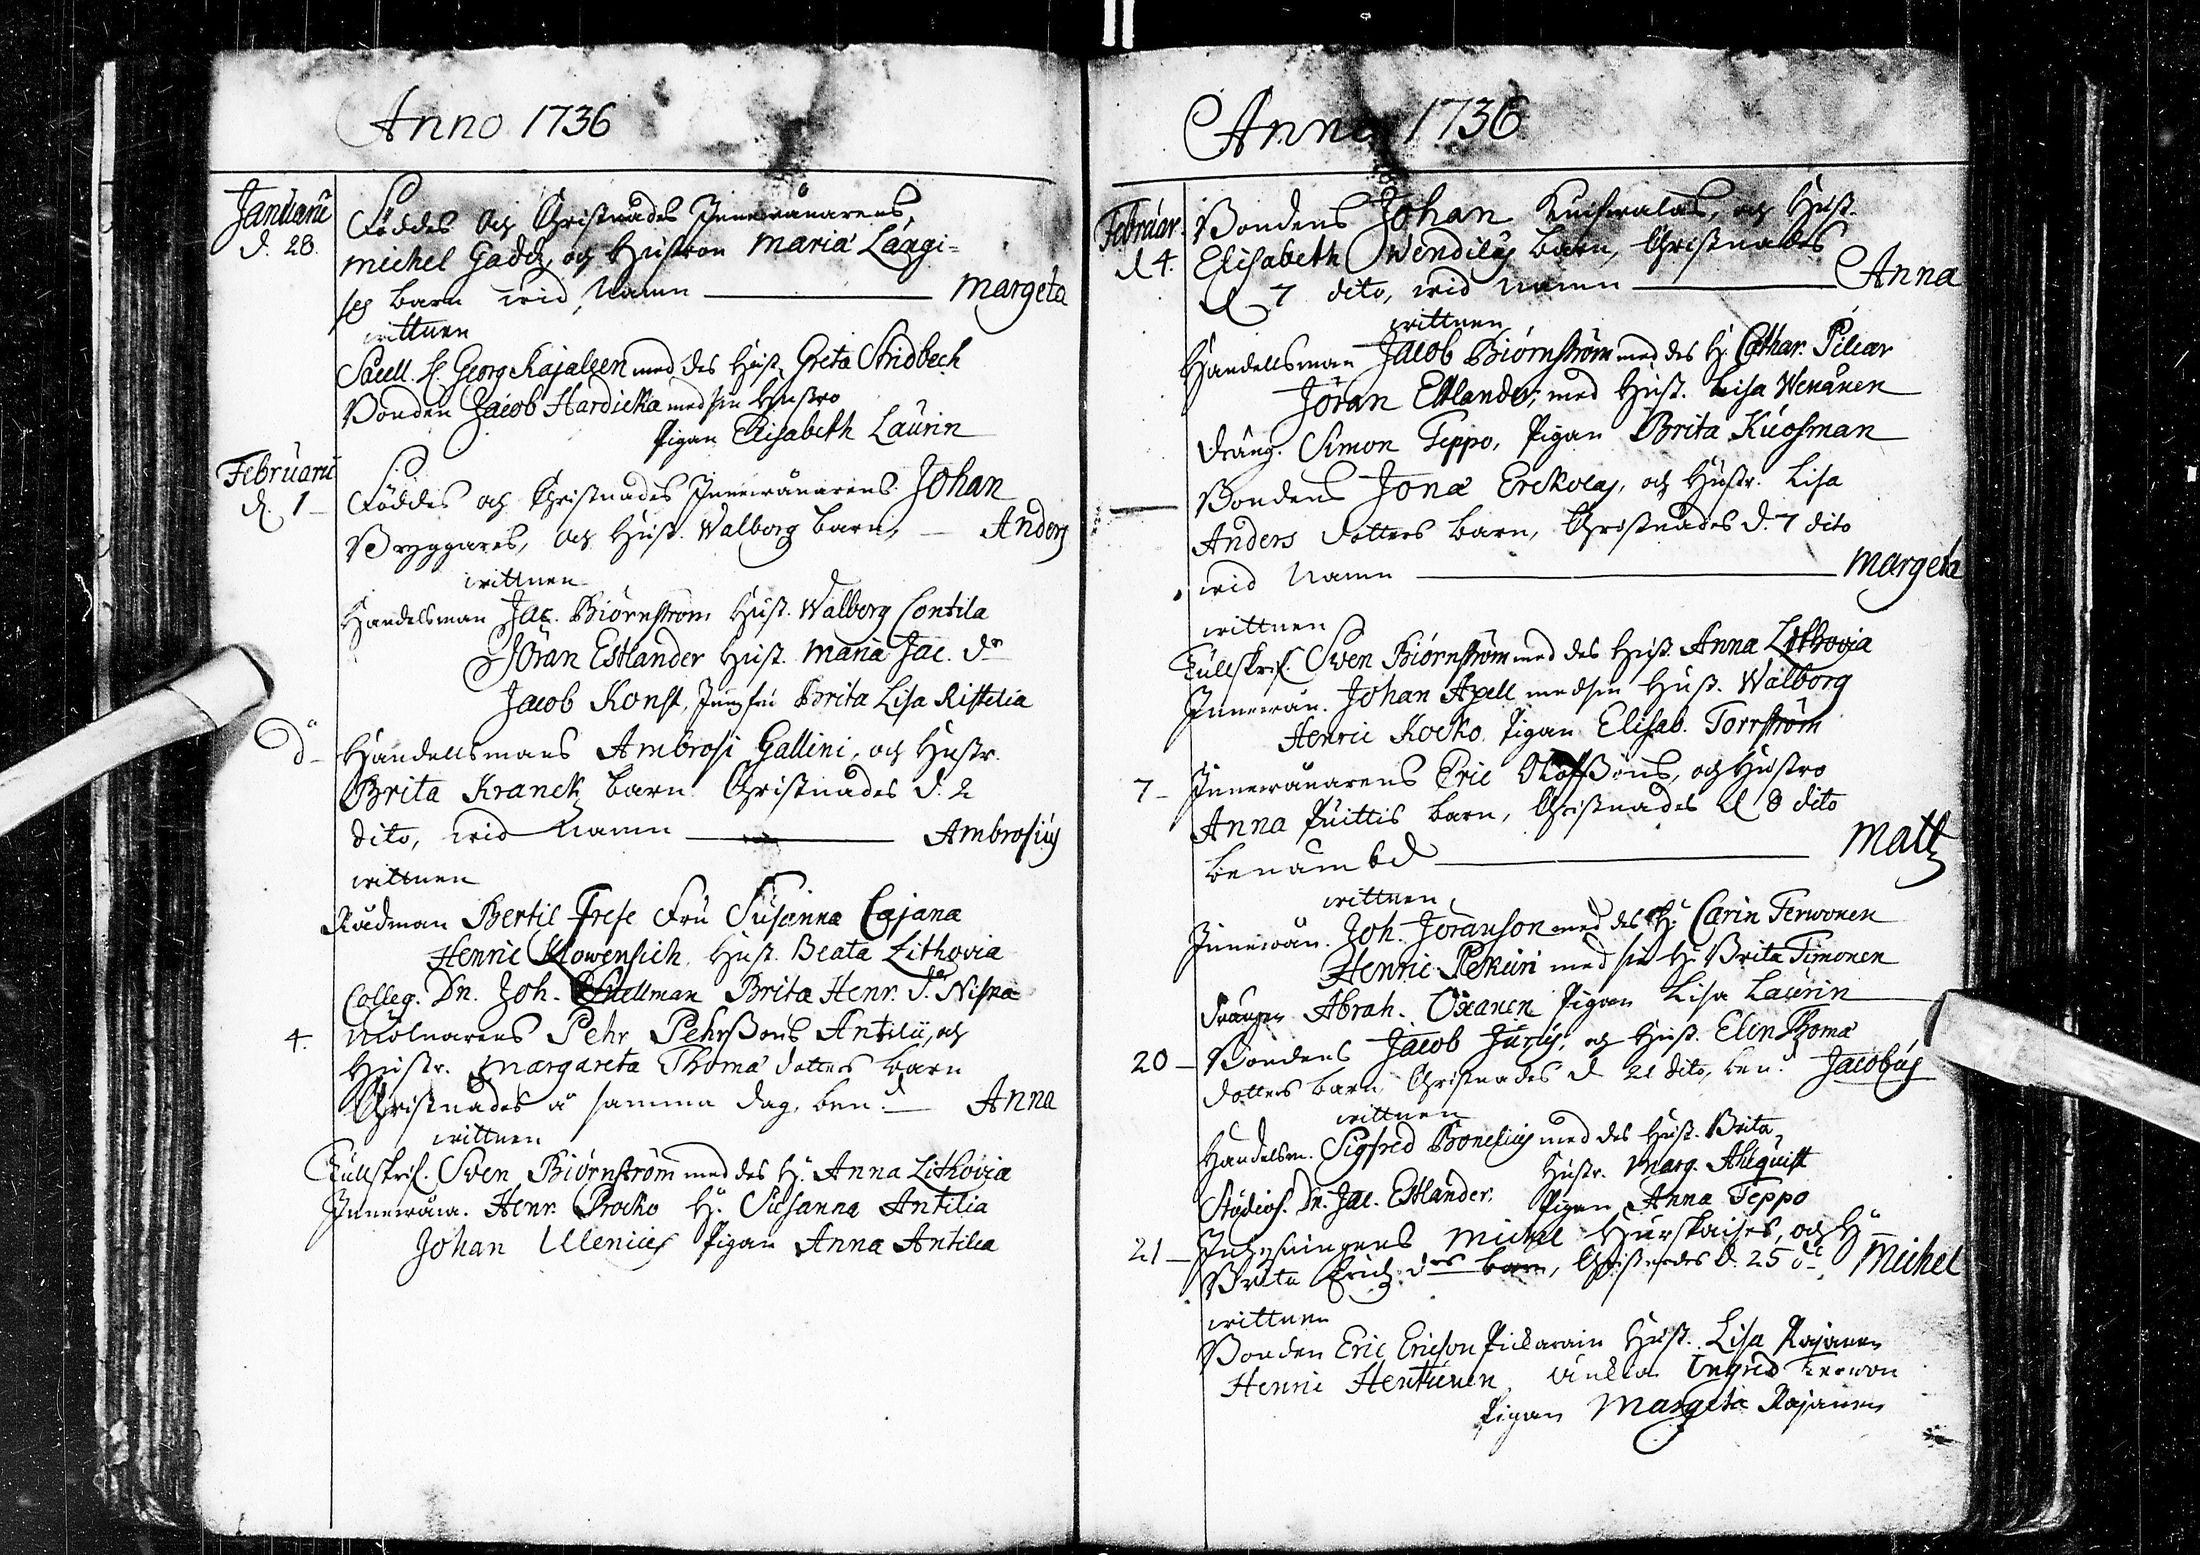 Anno 1736
Januarii d. 28. Föddes och Christnades Innewånarens,
Michel Gadds och Hustron Maria Langi-
ses barn wid Namn — Margeta
wittnen
Sr. Georg Kajaleen med des Hust. Greta Stridbech
Bonden Jacob Hardicka med sin Hustro
Pigan Elisabeth Laurin
Februarii d. 1 Föddes och Christnades Innewånarens Johan
Bryggares, och Hust. Walborg barn, — Anders
wittnen
Handelsman Jac. Biörnström Hust. Walborg Contila
Jöran Estlander Hust. Maria Jac. dr
Jacob Konst, Jungfru Brita Lisa Ristelia
do Handelsmans Ambrosi Gallini, och Hustr.
Brita Kranck barn Christnades d. 2
dito, wid Namn — Ambrosius
wittnen
Rådman Bertil Frese Fru Susanna Cajana
Henric Hust. Beata Lithovia
Colleg. Dn. Joh. Snellman Brita Henr. dr
4. Mölnarens Pehr Pehrßons Antilii, och
Hustr. Margareta Thomæ dotters barn
Christnades å samma dag, ben.d — Anna
wittnen
Tullskrif. Swen Biörnström med des H. Anna Lithovia
Innewåna. Henr. Procko H. Susanna Antilia
Johan Ulenius Pigan Anna Antilia
Anno 1736
Februar. d 4. Bondens Johan och Hust.
Elisabeth Wendelii barn, Christnades
d 7 dito, wid Namn — Anna
wittnen
Handelsman Jacob Biörnström med des H. Cathar. Peldar
Jöran Estlander, med Hust. Lisa Wenänen
dräng. Simon Teppo, Pigan Brita Kuosman
— Bondens Jonæ Erckolas, och Hustr. Lisa
Anders dotters barn, Christnades d. 7 dito
wid Namn — Margeta
wittnen
Tullskrif. Swen Biörnström med des Hust. Anna Lithovia
Innewån. Johan Apell med sin Hust. Walborg
Henric Kocko Pigan Elisab. Torrström
7 — Innewånarens Eric Oloffßons, och Hustro
Anna Puittis barn, Christnades d 8 dito
benämbd — Matts
wittnen
Innewån. Joh. Jöranson med des H. Carin Terwonen
Henric Pekuri med sin H. Brita Timonen
drängen Abrah. Oxanen Pigan Lisa Laurin
20 — Bondens Jacob Jurus, och Hust. Elin Thomæ
dotters barn Christnades d 21 dito, ben.d Jacobus
wittnen
Handelsm. Sigfred Bonelius med des Hust. Brita
Hustr. Marg. Ahlquist
Studios. Dn. Jac. Estlander. Pigan Anna Teppo
21 — Michel Hurskaises, och H.
Brita Erichs drs barn, Christnades d. 25 do Michel
wittnen
Bonden Eric Ericson Pickarain Hust. Lisa Rajanen
Henric Hentuinen Enkia Ingrid Terwon
Pigan Margeta Rajanen